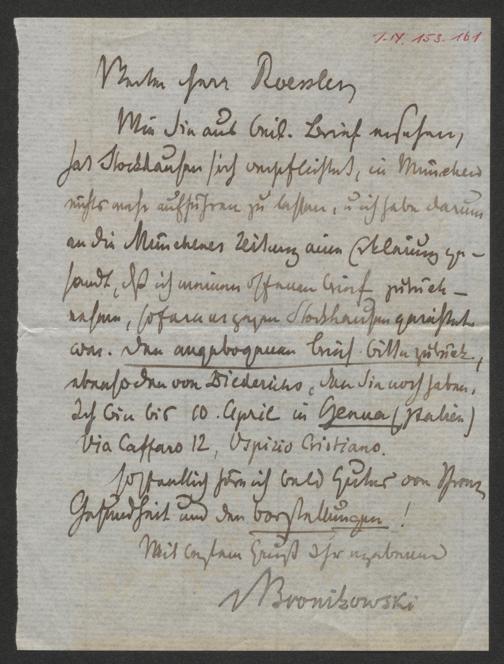 1-IV. 153-161
Werter Herr Roessler,
Wie Sie aus beil. Brief ersehen,
hat Stockhausen sich verpflichtet, in München
nichts mehr aufführen zu lassen, u. ich habe darum
an die Münchener Zeitung eine Erklärung ge-
sandt, daß ich meinen offenen Brief zurück-
nehme, sofern er gegen Stockhausen gerichtet
war. Den angebogenen Brief bitte zurück,
ebenso den von Diederichs, den Sie noch haben.
Ich bin bis 10. April in Genua (Italien)
Via Caffaro 12, Ospizio Cristiano.
Hoffentlich höre ich bald Gutes von Ihrer
Gesundheit und den Vorstellungen!
Mit bestem Gruß Ihr ergebener
Bronikowski